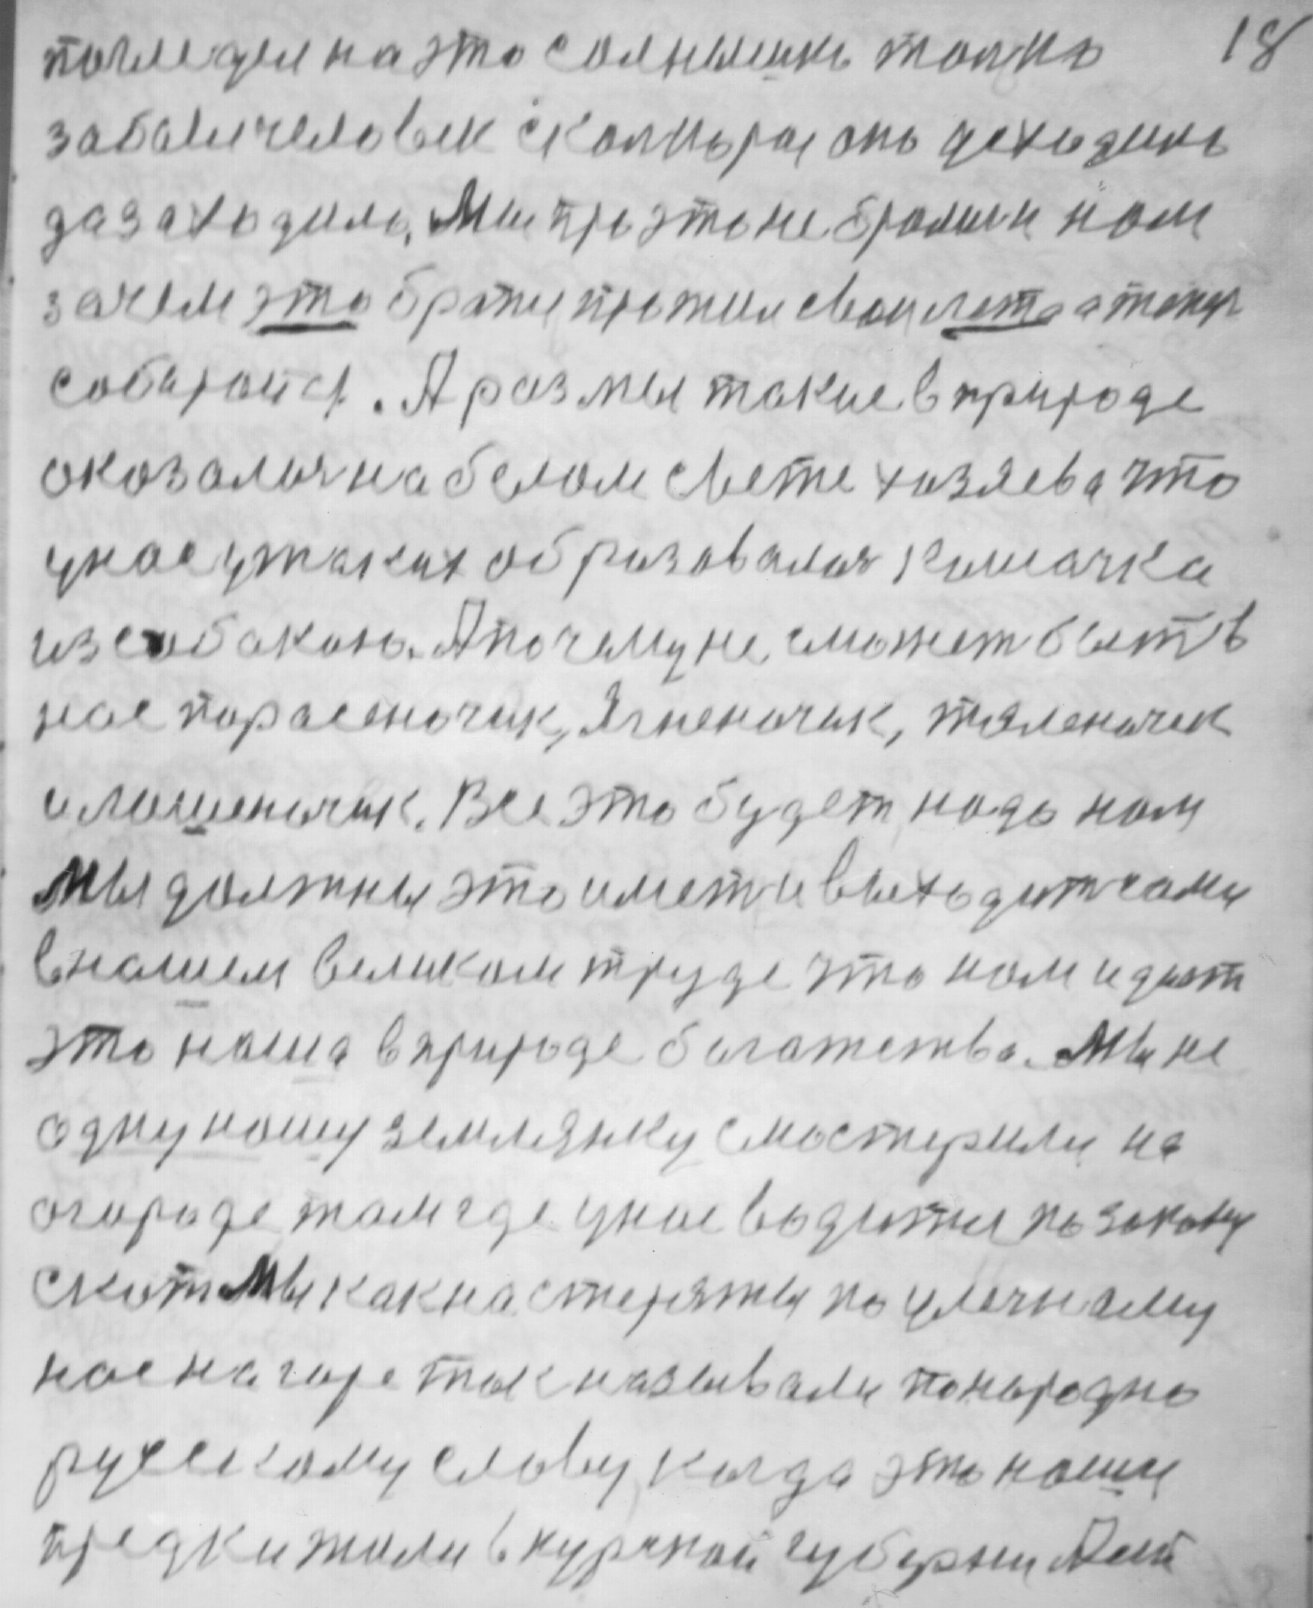 18
погледел на это солнышко только
забыл человек сколько раз оно
да заходило. Мы про это не брали к нам
зачем это брати прожил свои лета а теперь
собирайся. А раз мы такие в природе
оказалися на белом свете хозяева что
у нас у таких образовалася кошачка
из собакою. А почему не сможет быть в
нас парасеночик, Ягненочик, тяленочек
и лошеночик. Все это будет надо нам
Мы должны это имет и выходить сами
в нашем великом труде что нам и дают
это наша в природе богатства. Мы не
одну нашу землянку смостерили на
огороде там где у нас водится по закону
скот Мы как на по улечнаму
нас на горе так называли по народно
русскому слову когда это наши
предки жили в курской губерни